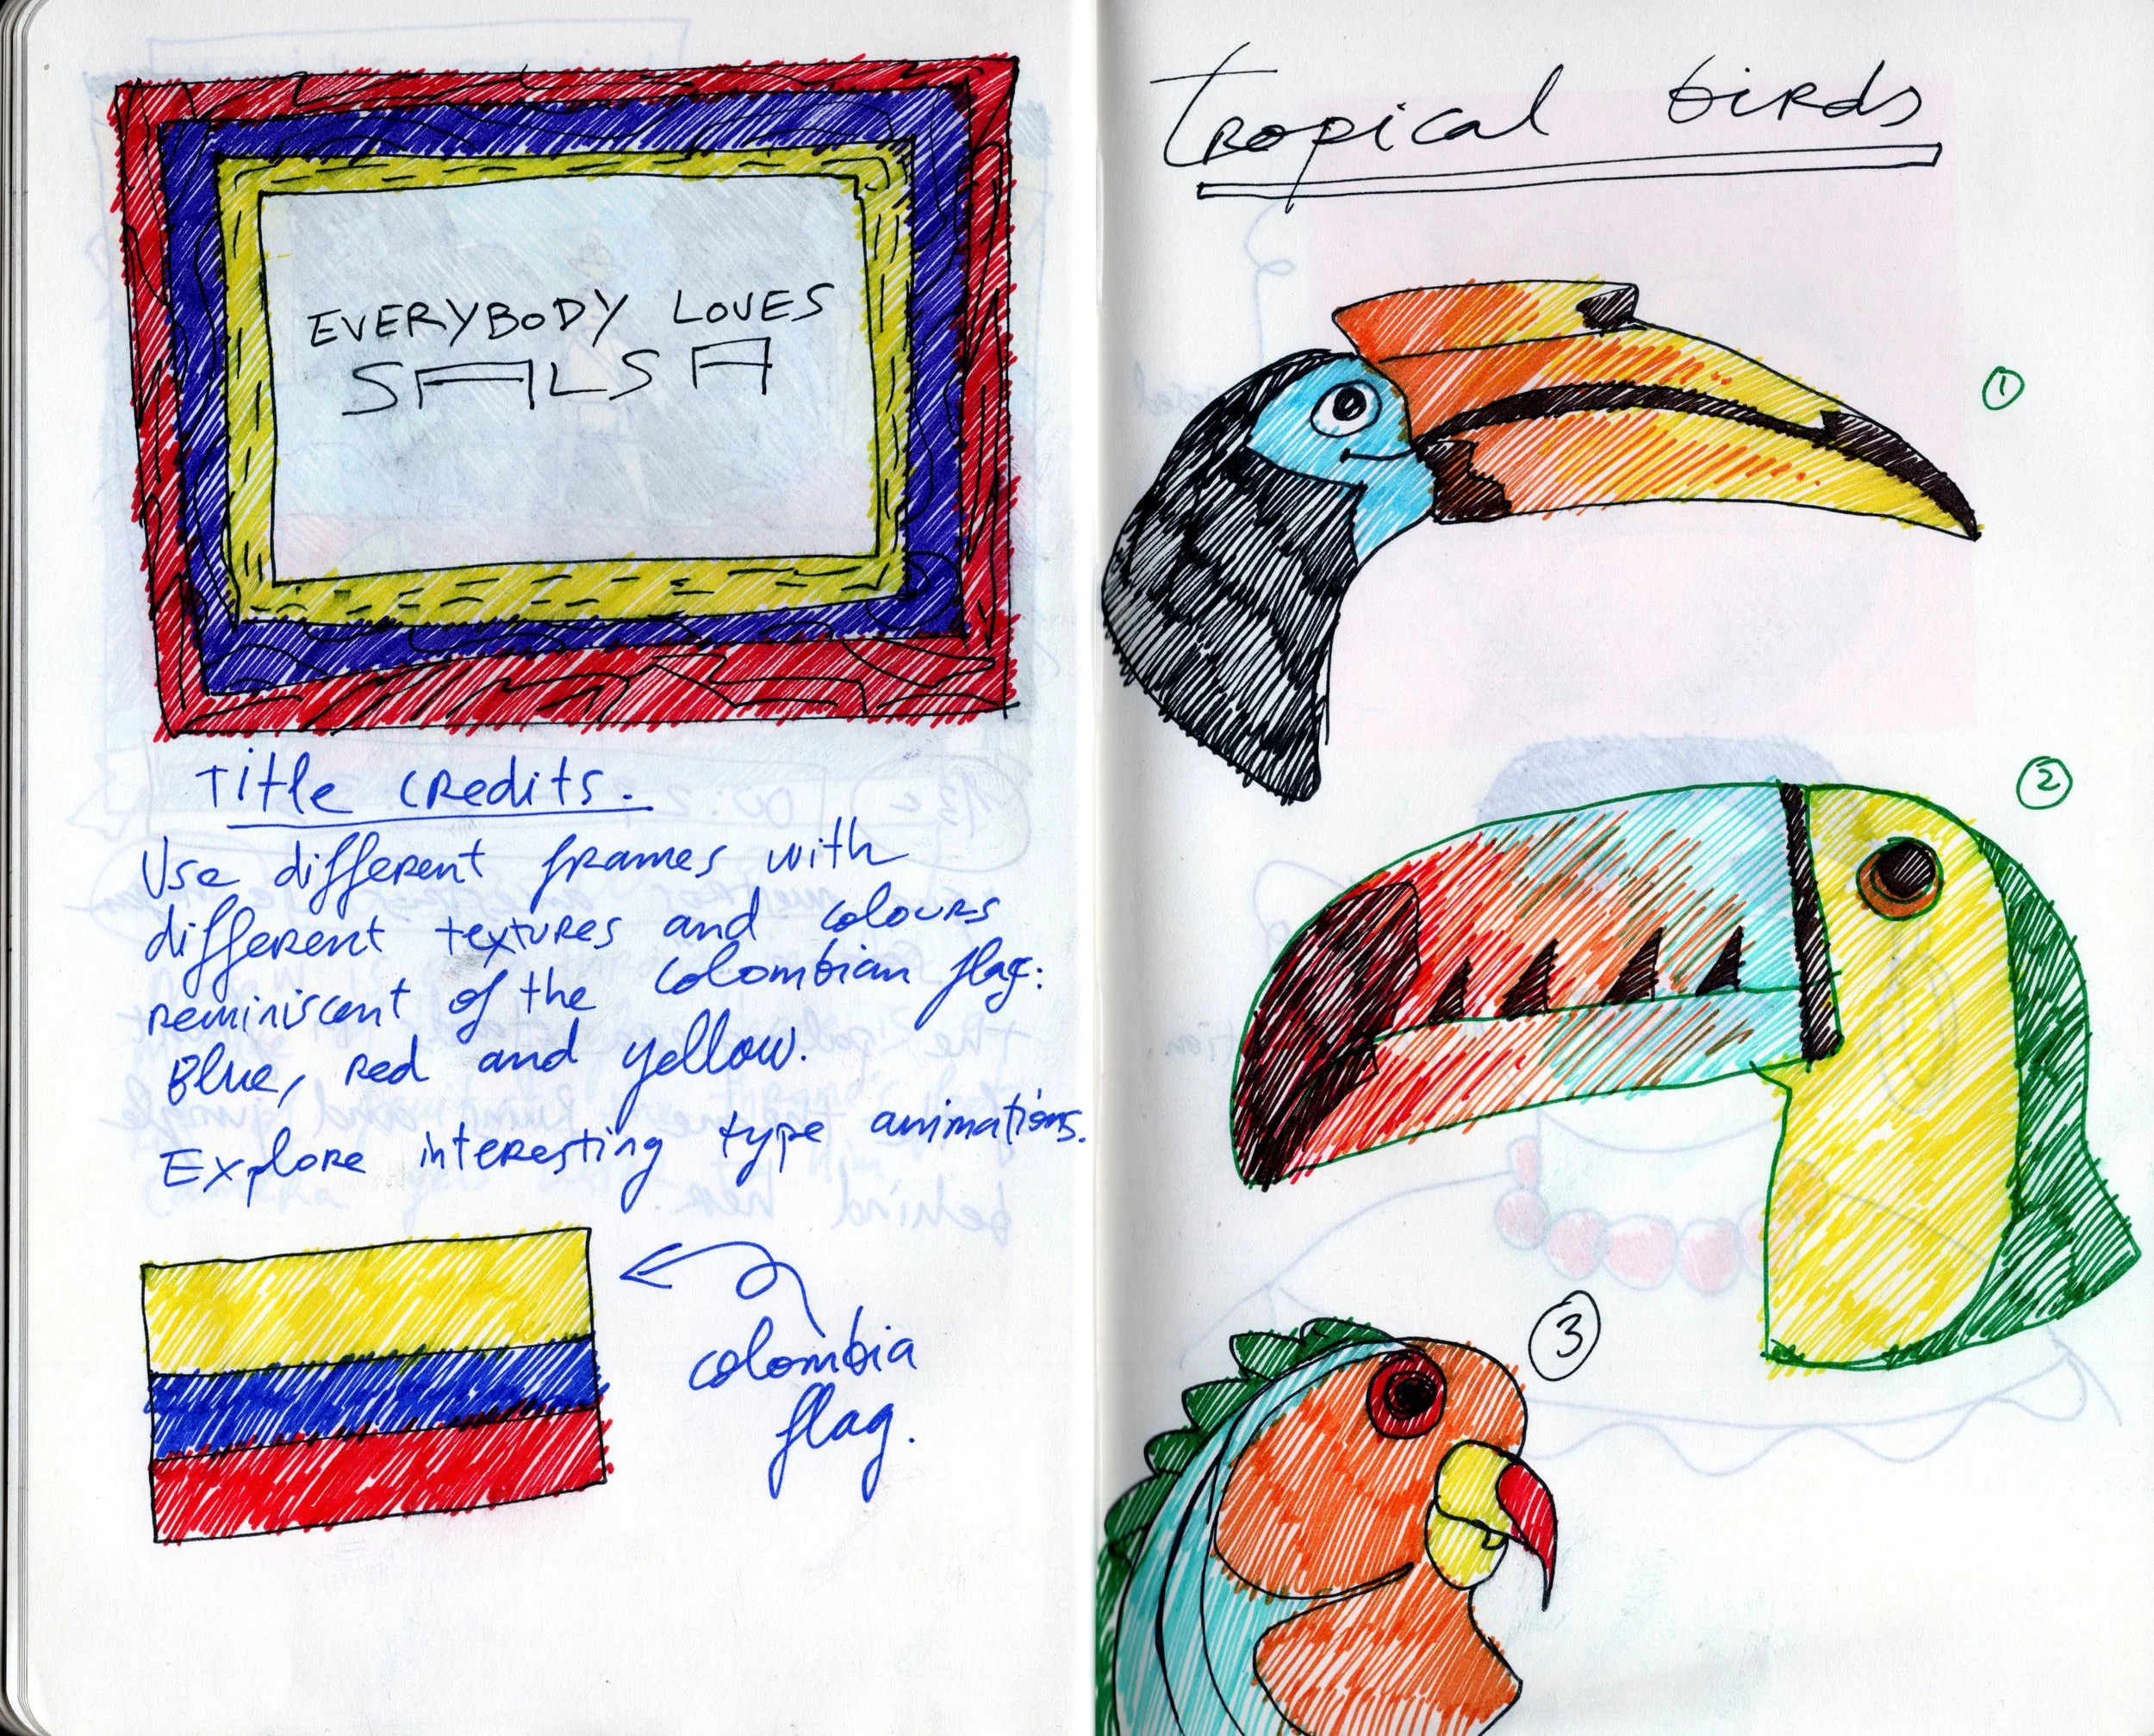 EVERYBODY LOVES
SALSA
Title credits.
Use different frames with
different textures and colours
reminiscent of the colombian flag:
Blue, red and yellow.
Explore interesting type animations.
colombia
flag.
tropical birds
1
2
3